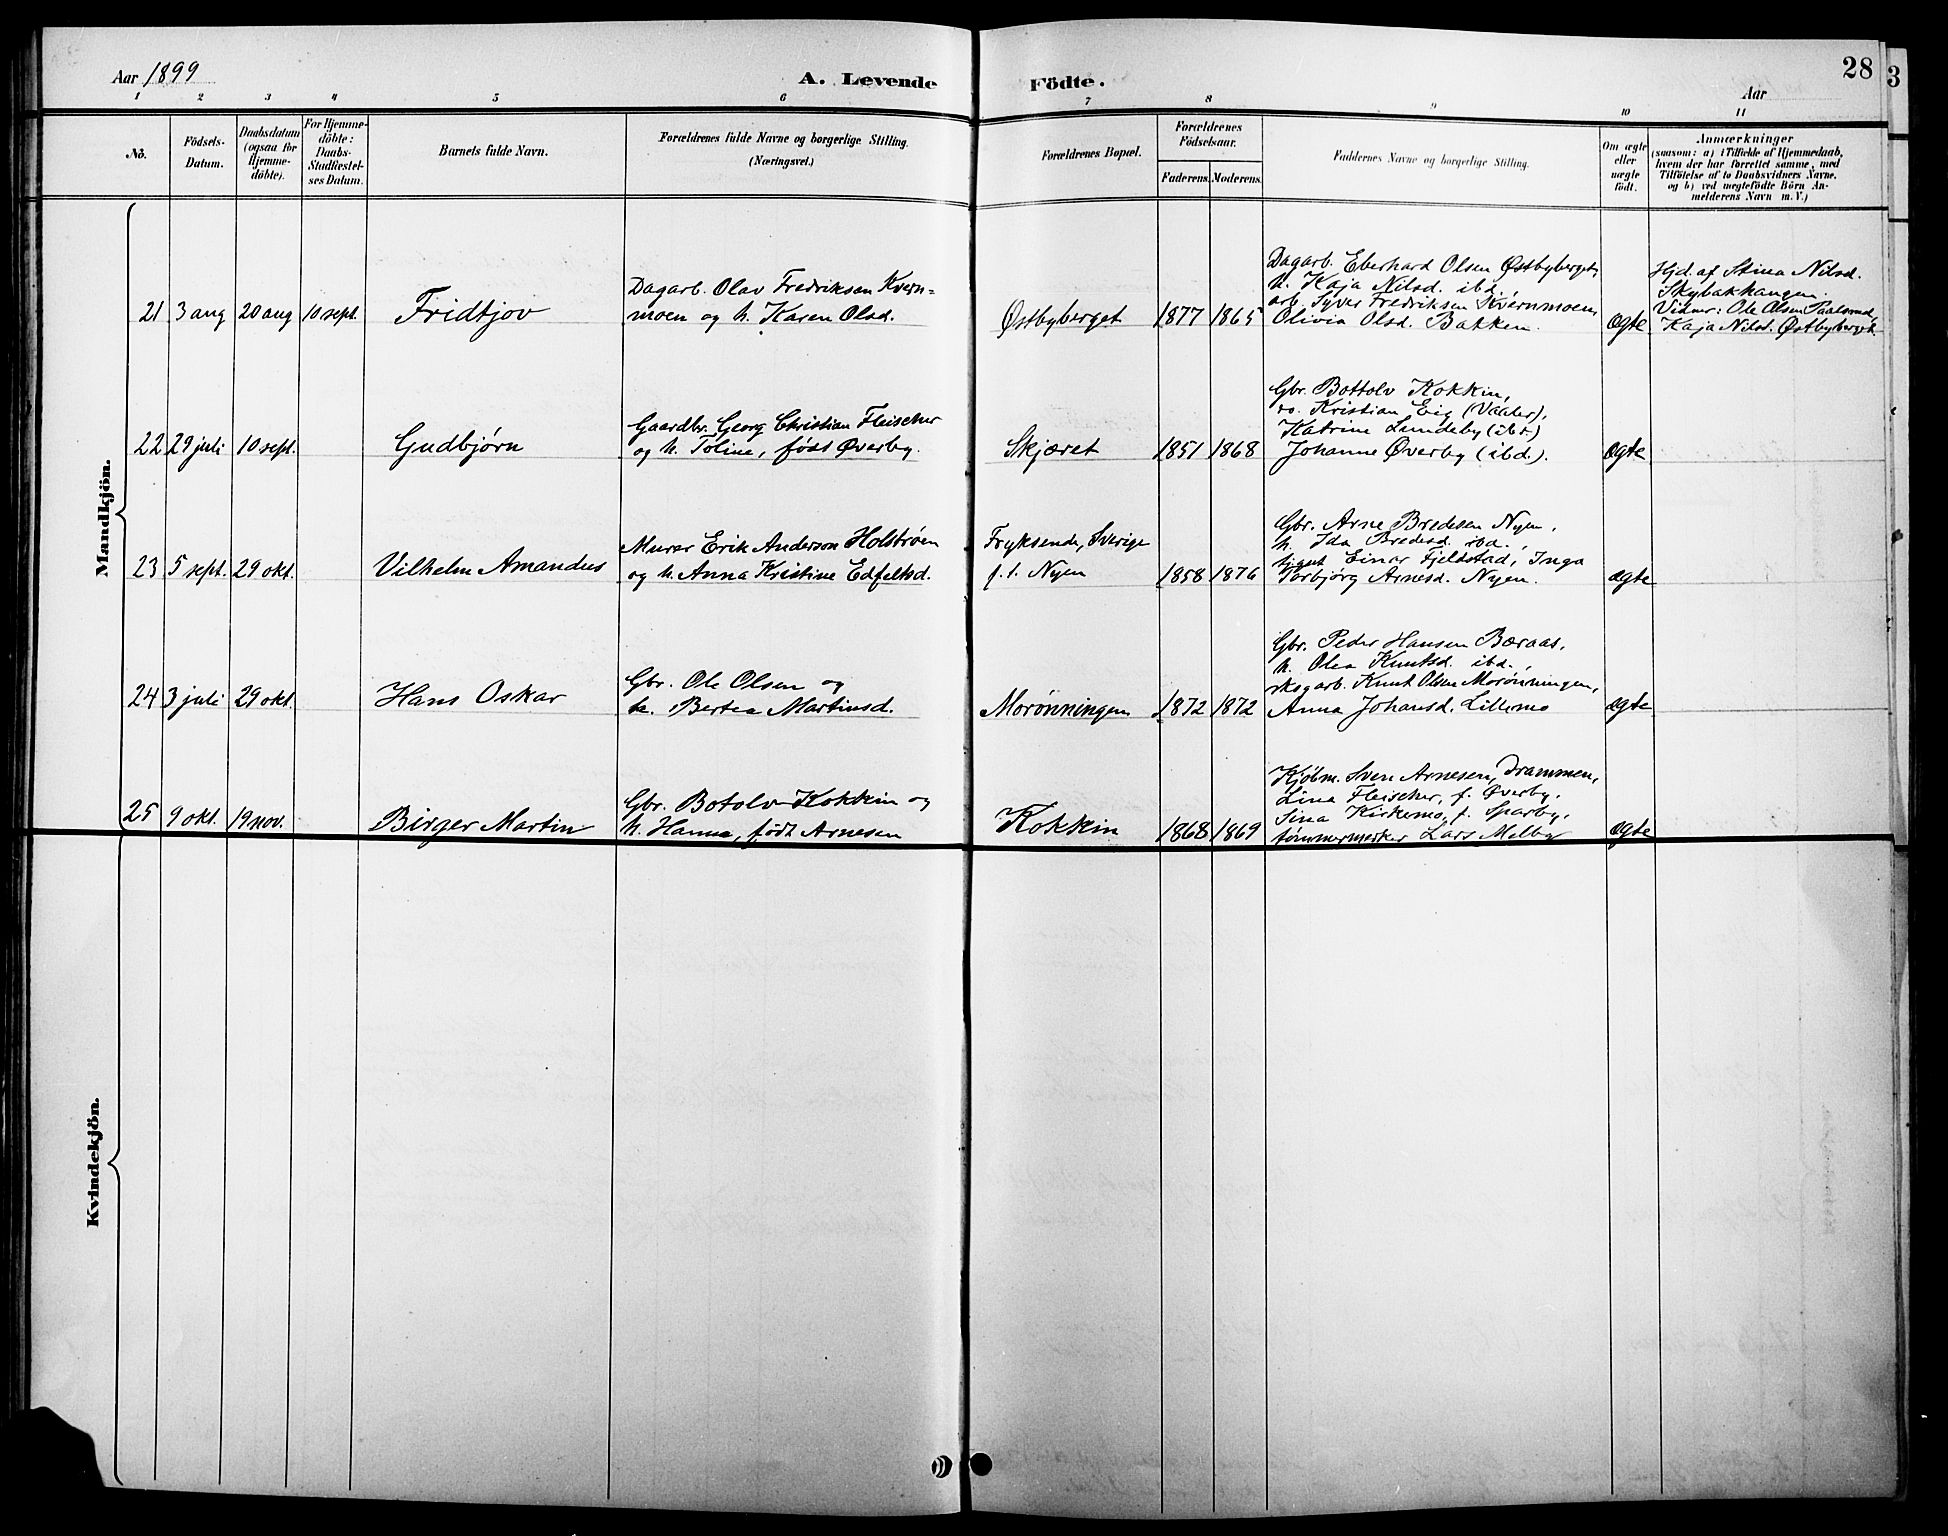 Aar 1899
A. Levende Födte.
28
Aar
3
1 2 3 4 5 6 7 8 9 10 11
No.
Födsels-
Datum.
Daabsdatum
(ogsaa for
Hjemme-
döbte).
For Hjemme-
döbte:
Daabs-
Stadfæstel-
ses Datum.
Barnets fulde Navn.
Forældrenes fulde Navne og borgerlige Stilling.
(Næringsvei.)
Forældrenes Bopæl.
Forældrenes
Födselsaar.
Faderens. Moderens.
Faddernes Navne og borgerlige Stilling.
Om ægte
eller
uægte
födt.
Anmærkninger
(saasom: a) i Tilfælde af Hjemmedaab,
hvem der har forrettet samme, med
Tilföielse af to Daabsvidners Navne,
og b) ved uegtefödte Börn An-
melderens Navn m. V.)
Mandkjön.
21 3 aug 20 aug 10 sept. Fridtjov
Dagarb. Olav Fredriksen Kvern-
moen og h. Karen Olsd.
Østbyberget 1877 1865
Dagarb. Eberhard Olsen Østbyberget,
h. Kaja Nilsd. ibd.
arb. Syver Fredriksen Kvernmoen,
Olivia Olsd. Bakken.
ægte
Hjd. af Stina Nilsd.
Skybakhangen.
Vidner: Ole Olsen Paalsrud,
Kaja Nilsd. Østbyberget.
22 29 juli 10 sept. Gudbjørn
Gaardbr. Georg Christian Fleischer
og h. Toline, født Øverby.
Skjæret 1851 1868
Gbr. Bottolv Kokkin,
do. Kristian Eig (Vaaler),
Katrine Lundeby (ibd.)
Johanne Øverby (ibd.).
ægte
23 5 sept. 29 okt. Vilhelm Amandus
Murer Erik Anderson Holstrøm
og h. Anna Kristine Edfeltsd.
Fryksende, Sverige
f. t. Nyen 1858 1876
Gbr. Arne Bredesen Nyen,
h. Ida Bredesd. ibd.,
Einar Fjeldstad, Inga
Torbjørg Arnesd. Nyen.
ægte
24 3 juli 29 okt. Hans Oskar
Gbr. Ole Olsen og
h. Bertea Martinsd.
Morønningen 1872 1872
Gbr. Peder Hansen Bæraas,
h. Olea Knutsd. ibd.,
skogarb. Knut Olsen Morønningen,
Anna Johansd. Lillemo
ægte
25 9 okt. 19 nov. Birger Martin
Gbr. Botolv Kokkin og
h. Hanna, født Arnesen
Kokkin 1868 1869
Kjøbm. Sven Arnesen, Drammen,
Lina Fleischer, f. Øverby,
Sina Kirkemo, f. Sparby,
tømmermerker Lars Melby
ægte
Kvindekjön.